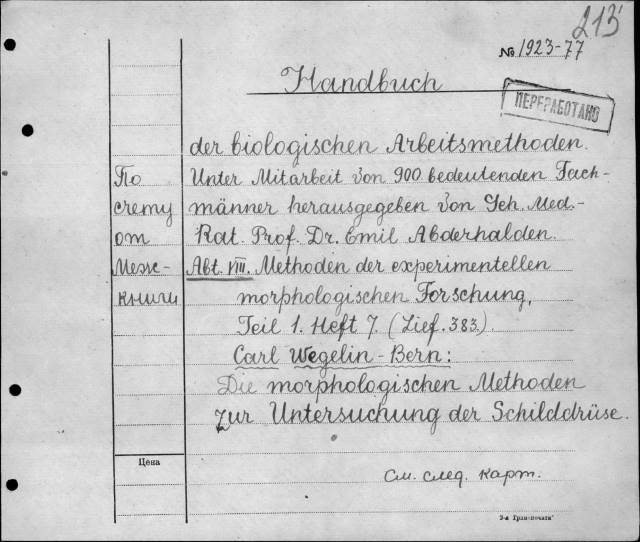 213
№ 1923-77
Handbuch
ПЕРЕРАБОТАНО
der biologischen Arbeitsmethoden.
По Unter Mitarbeit von 900 bedeutenden Fach-
счету männer herausgegeben von Geh. Med.-
от Rat. Prof. Dr. Emil Abderhalden.
Меж- Abt. VIII. Methoden der experimentellen
книги morphologischen Forschung,
Teil 1. Heft 7. (Lief. 383.)
Carl Wegelin-Bern:
Die morphologischen Methoden
zur Untersuchung der Schilddrüse.
Цена
См. след. карт.